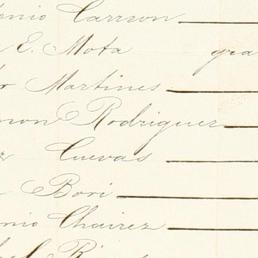 nio Carrson
E. Mota gra
o Martines
mon Rodriguez
z Cuevas
Bori
nio Chairez